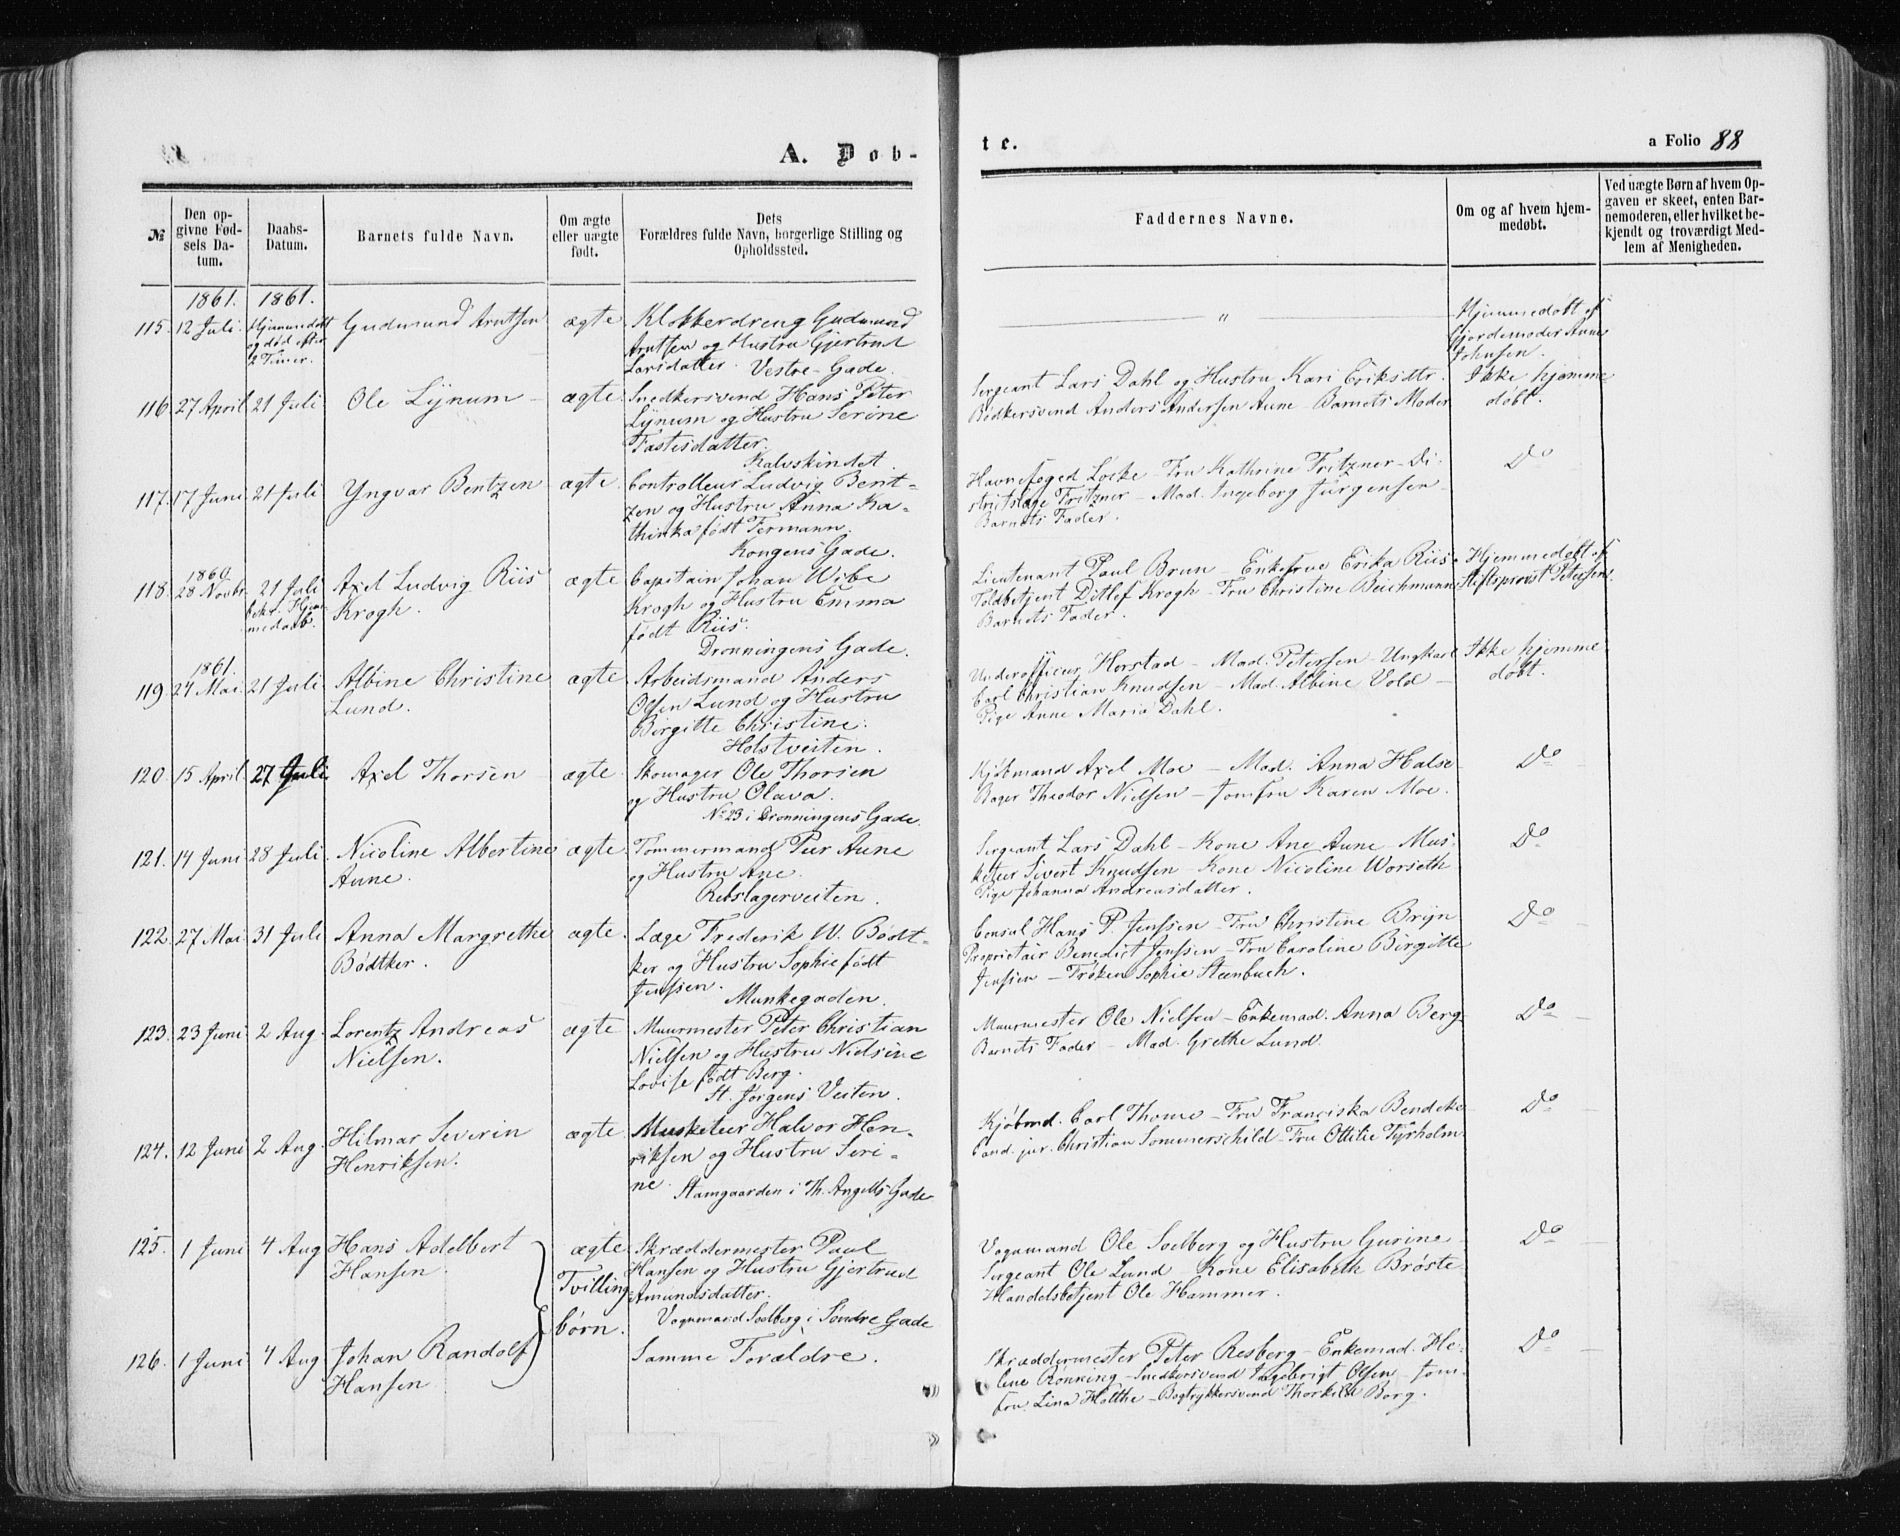 A. Døb-
№
Den op-
givne Fød-
sels Da-
tum.
Daabs-
Datum.
Barnets fulde Navn.
Om ægte
eller uægte
født.
Dets
Forældres fulde Navn, borgerlige Stilling og
Opholdssted.
1861. 1861.
115. 12 Juli. Hjemmedøbt
og død efter
2 Timer.
Gudmund Arntsen ægte Klokkerdreng Gudmund
Arntsen og Hustru Gjertrud
Larsdatter. Vestre-Gade.
116. 27 April 21 Juli Ole Lynum ægte Snedkersvend Hans Peter
Lynum og Hustru Serine
Kalvskindet.
117. 17 Juni 21 Juli Yngvar Bentzen ægte Controlleur Ludvig Bent-
zen og Hustru Anna Ka-
thinka født Fermann.
Kongens Gade.
1860
118. 28 Novbr. 21 Juli
bekr. Hjem-
medaab.
Axel Ludvig Riis
Krogh.
ægte Capitain Johan Wibe
Krogh og Hustru Emma
født Riis.
Dronningens Gade.
1861.
119 24 Mai. 21 Juli. Albine Christine
Lund.
ægte Arbeidsmand Anders
Olsen Lund og Hustru
Birgitte Christine.
Holstveiten.
120. 15 April 27 Juli Axel Thorsen ægte Skomager Ole Thorsen
og Hustru Olava.
No 23 i Dronningens Gade.
121. 14 Juni 28 Juli Nicoline Albertine
Aune.
ægte Tømmermand Peer Aune
og Hustru Ane.
Rebslagerveiten.
122. 27 Mai 31 Juli Anna Margrethe
Bødtker.
ægte. Læge Frederik W. Bødt-
ker og Hustru Sophie født
Jenssen. Munkegaden.
123. 23 Juni 2 Aug. Lorentz Andreas
Nielsen.
ægte Muurmester Peter Christian
Nielsen og Hustru Nielsine
Lovise født Berg.
St. Jørgens Veiten.
124. 12 Juni 2 Aug Hilmar Severin
Henriksen.
ægte Musketeer Halvor Hen-
riksen og Hustru Seri-
ne. Stamgaarden i Th. Angells Gade
125. 1 Juni 4 Aug Hans Adelbert
Hansen.
ægte
Tvilling-
børn.
Skræddermester Paul
Hansen og Hustru Gjertrud
Amundsdatter.
Vognmand Soelberg i Søndre Gade
126. 1 Juni 4 Aug Johan Randolf
Hansen
Samme Forældre.
te.
a Folio 88
Faddernes Navne.
Om og af hvem hjem-
medøbt.
Ved uægte Børn af hvem Op-
gaven er skeet, enten Bar-
nemoderen, eller hvilket be-
kjendt og troværdigt Med-
lem af Menigheden.
"
Hjemmedøbt af
Gjordemoder Anne
Johnsen.
Sergeant Lars Dahl og Hustru Kari Eriksdtr.
Bødkersvend Anders Andersen Aune - Barnets Moder
Ikke hjemme
døbt.
Havnefoged Locke - Fru Kathrine Fritzner - Di-
strictslæge Fritzner - Mad. Ingeborg Jürgensen -
Barnets Fader.
Do
Lieutenant Paul Brun - Enkefrue Erika Riis -
Toldbetjent Ditlef Krogh - Fru Christine Buchmann
Barnets Fader.
Hjemmedøbt af
Stiftsprovst Petersen.
Underofficer Horstad - Mad. Petersen - Ungkarl
Carl Christian Knudsen - Mad. Albine Vold -
Pige Anne Maria Dahl.
Ikke hjemme
døbt.
Kjøbmand Axel Moe - Mad. Anna Halse
Bager Theodor Nielsen - Jomfru Karen Moe.
Do
Sergeant Lars Dahl - Kone Ane Aune - Mus-
keteer Sivert Knudsen - Kone Nicoline Worseth
Pige Johanna Andreasdatter.
Do
Consul Hans P. Jenssen - Fru Christine Bryn
Proprietair Benedict Jenssen - Fru Caroline Birgitte
Jenssen - Frøken Sophie Steenbuch.
Do
Muurmester Ole Nielsen - Enkemad. Anna Berg-
Barnets Fader - Mad. Grethe Lund.
Do
Kjøbmd. Carl Thome - Fru Franciska Bendeke
Cand. jur. Christian Sommerschild - Fru Ottilie Tyrholm
Do
Vognmand Ole Soelberg og Hustru Gurine
Sergeant Ole Lund - Kone Elisabeth Brøste
Handelsbetjent Ole Hammer.
Do
Skræddermester Peter Resberg - Enkemad. He-
lene Rønning - Snedkersvend Ingebrigt Olsen - Jom-
fru Lina Holthe - Bogtrykkersvend Thorkild Borg.
Do